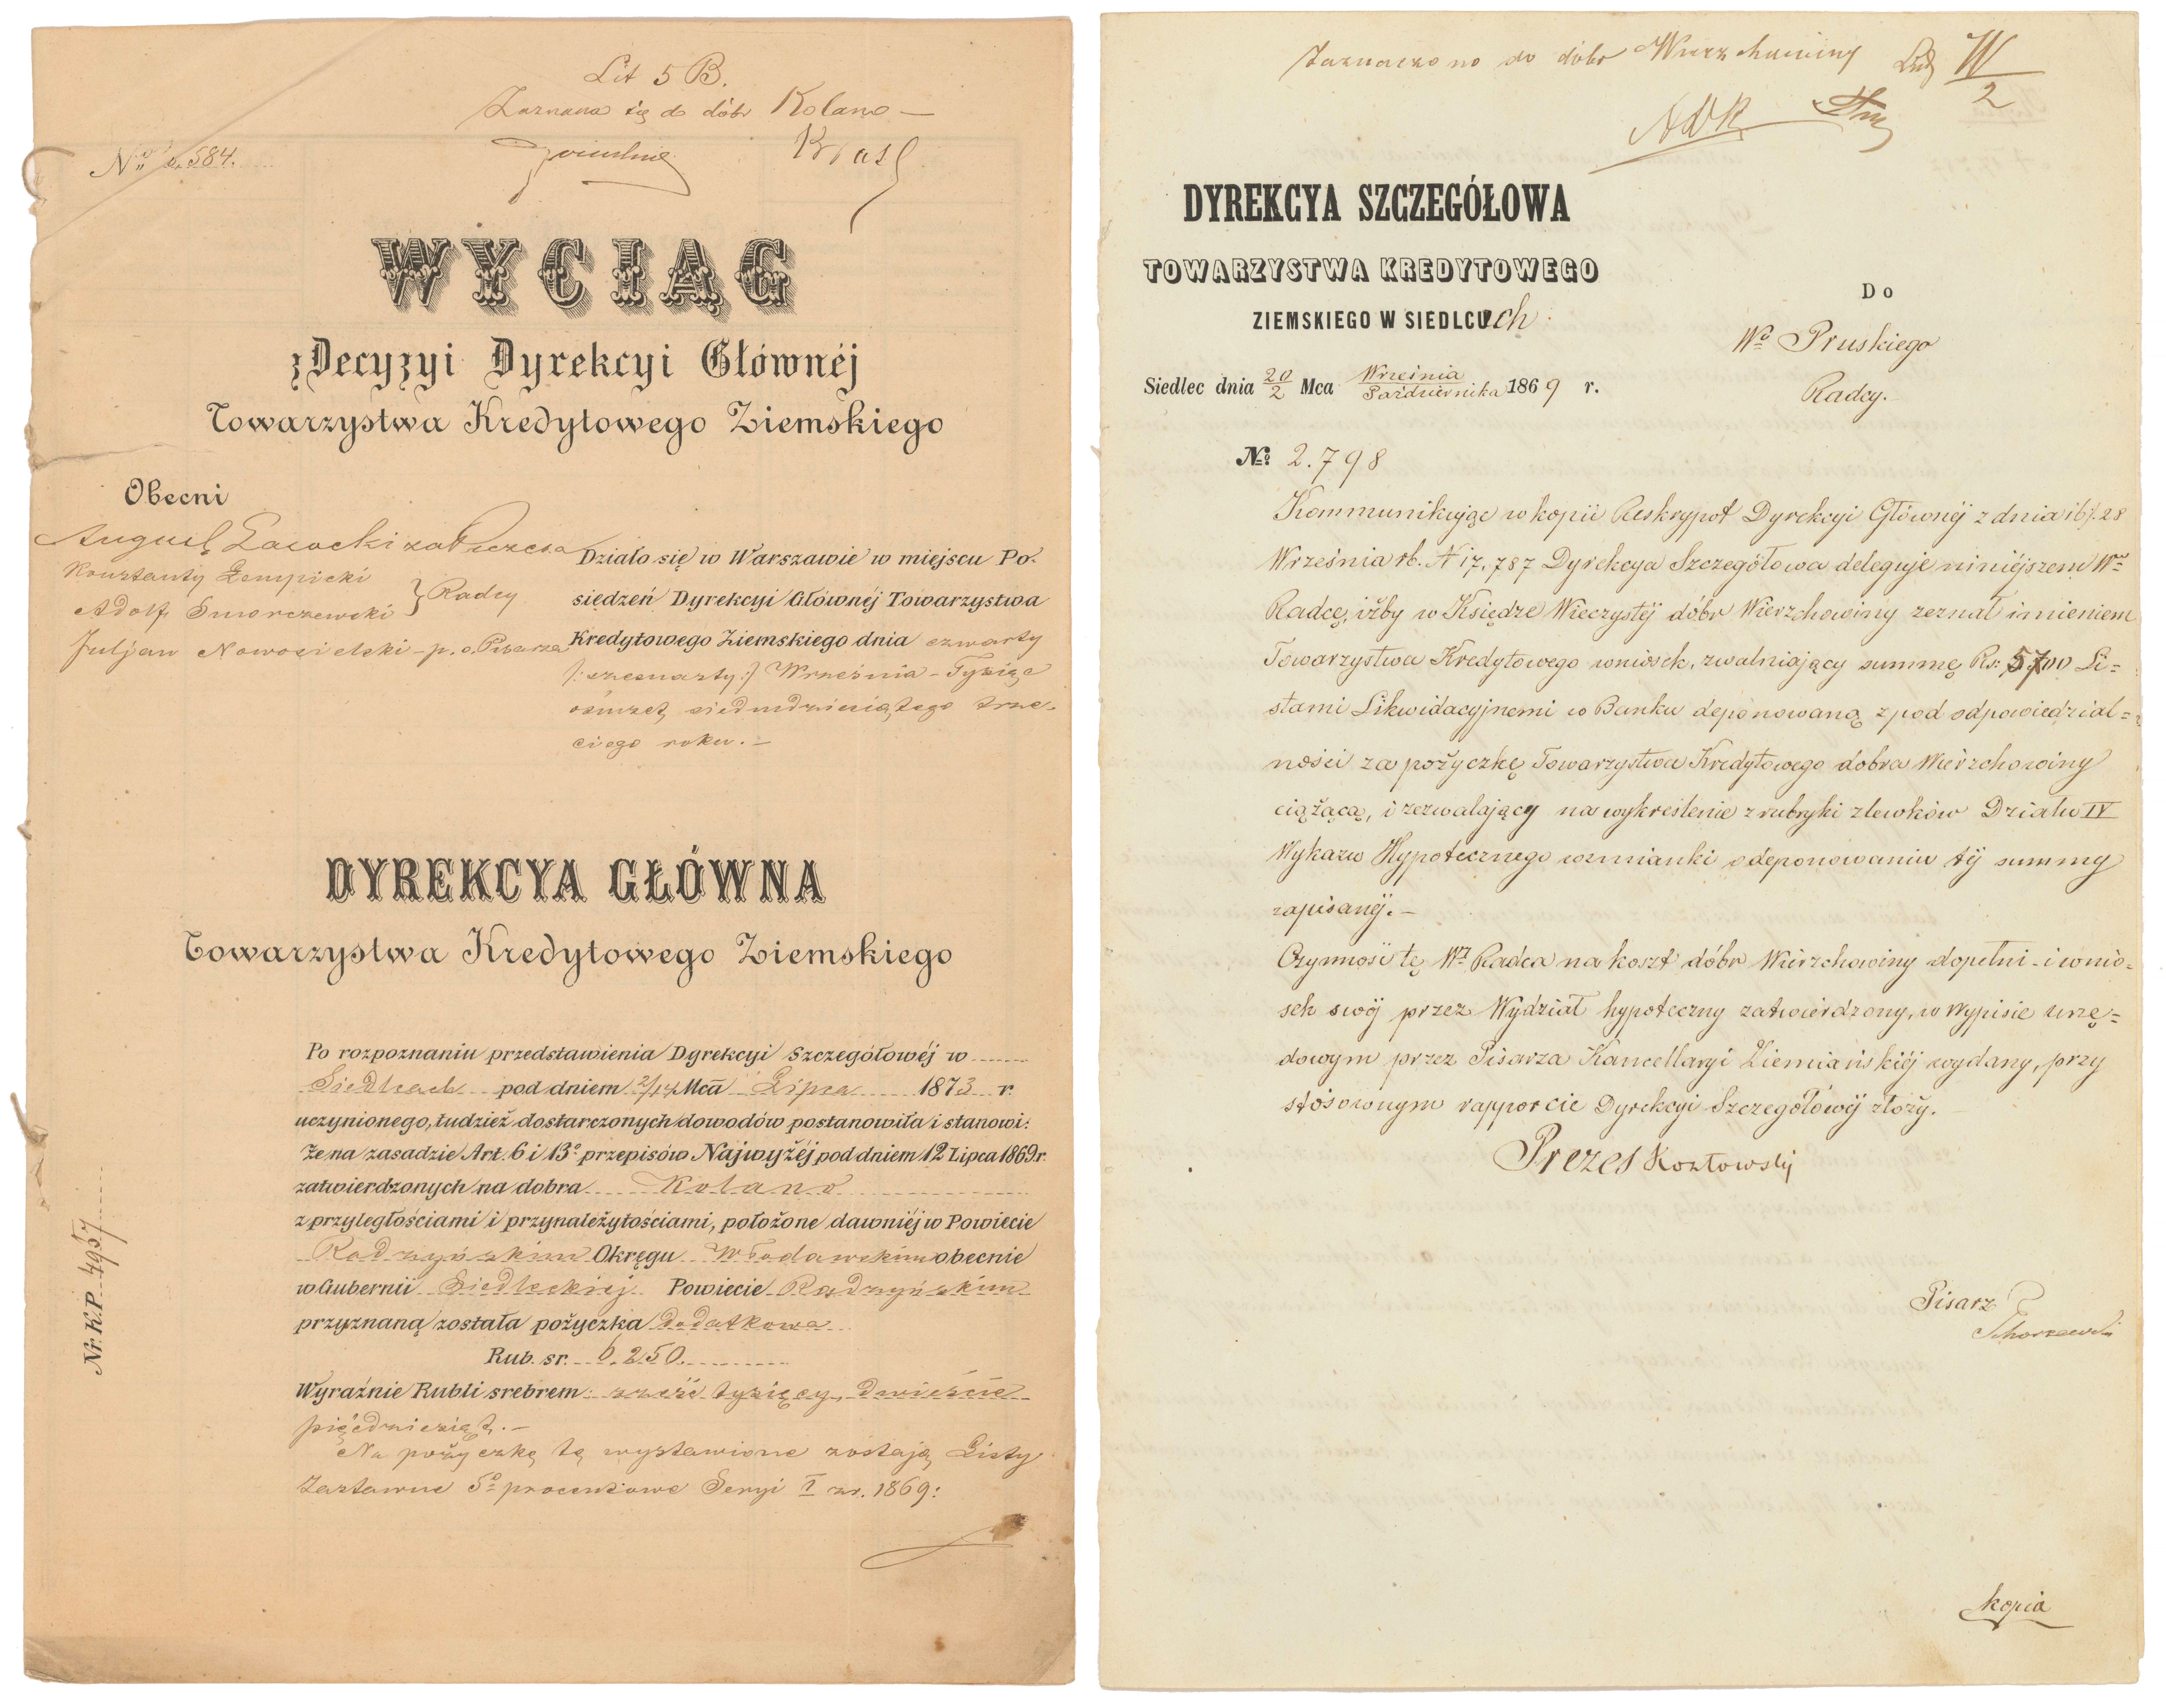 Lit 5 B.
Zeznana się do dóbr Kolano —
No 584.
WYCIĄG
z Decyzyi Dyrekcyi Głównéj
Towarzystwa Kredytowego Ziemskiego
Obecni
August Zawocki za Prezesa
Konstanty Łempicki
Adolf Smorczewski } Radcy
Juljan Nowosielski - p. o. Pisarza
Działo się w Warszawie w miejscu Po-
siedzeń Dyrekcyi Głównéj Towarzystwa
Kredytowego Ziemskiego dnia czwarty
/: szesnasty :/ Września - Tysiąc
ośmset siedmdziesiątego trze-
ciego roku. —
DYREKCYA GŁÓWNA
Towarzystwa Kredytowego Ziemskiego
Po rozpoznaniu przedstawienia Dyrekcyi Szczegółowéj w
Siedlcach pod dniem 2/14 Mca Lipca 1873 r.
uczynionego, tudzież dostarczonych dowodów postanowiła i stanowi:
Że na zasadzie Art. 6 i 13o przepisów Najwyżéj pod dniem 12 Lipca 1869 r.
zatwierdzonych na dobra Kolano
z przyległościami i przynależytościami, położone dawniéj w Powiecie
Radzyńskim Okręgu Włodawskim obecnie
w Gubernii Siedleckiéj Powiecie Radzyńskim
przyznaną została pożyczka dodatkowa
Rub. sr. 6,250
Wyraźnie Rubli srebrem: sześć tysięcy, dwieście
pięćdziesiąt. —
Na pożyczkę tę wystawione zostają Listy
Zastawne 5o procentowe Seryi I zr. 1869:
Nr: K.P. 4957
Zaznaczono do dóbr Wierzchowiny Lit W/2
DYREKCYA SZCZEGÓŁOWA
TOWARZYSTWA KREDYTOWEGO
ZIEMSKIEGO W SIEDLCach
Siedlec dnia 20/2 Mca Września/Października 1869 r.
Do
Wo Pruskiego
Radcy.
No 2.798
Kommunikując w kopii Reskrypt Dyrekcyi Głównéj z dnia 16/28
Września rb. N 17,787 Dyrekcya Szczegółowa deleguje niniéjszem Wo
Radcę, iżby w Księdze Wieczystéj dóbr Wierzchowiny zeznał imieniem
Towarzystwa Kredytowego wniosek, zwalniający summę Rs: 5700 Li=
stami Likwidacyjnemi w Banku deponowaną z pod odpowiedzial=
ności za pożyczkę Towarzystwa Kredytowego dobra Wierzchowiny
ciążącą, i zezwalający na wykreślenie z rubryki zlewków Działu IV
Wykazu Hypotecznego wzmianki o deponowaniu téj summy
zapisanéj. —
Czynność tę Wy Radca na koszt dóbr Wierzchowiny dopełni - i wnio=
sek swój przez Wydział hypoteczny zatwierdzony, w wypisie urzę=
dowym przez Pisarza Kancellaryi Ziemiańskiéj wydany, przy
stósownym rapporcie Dyrekcyi Szczegółowéj złoży.
Prezes Kozłowski
Pisarz
kopia